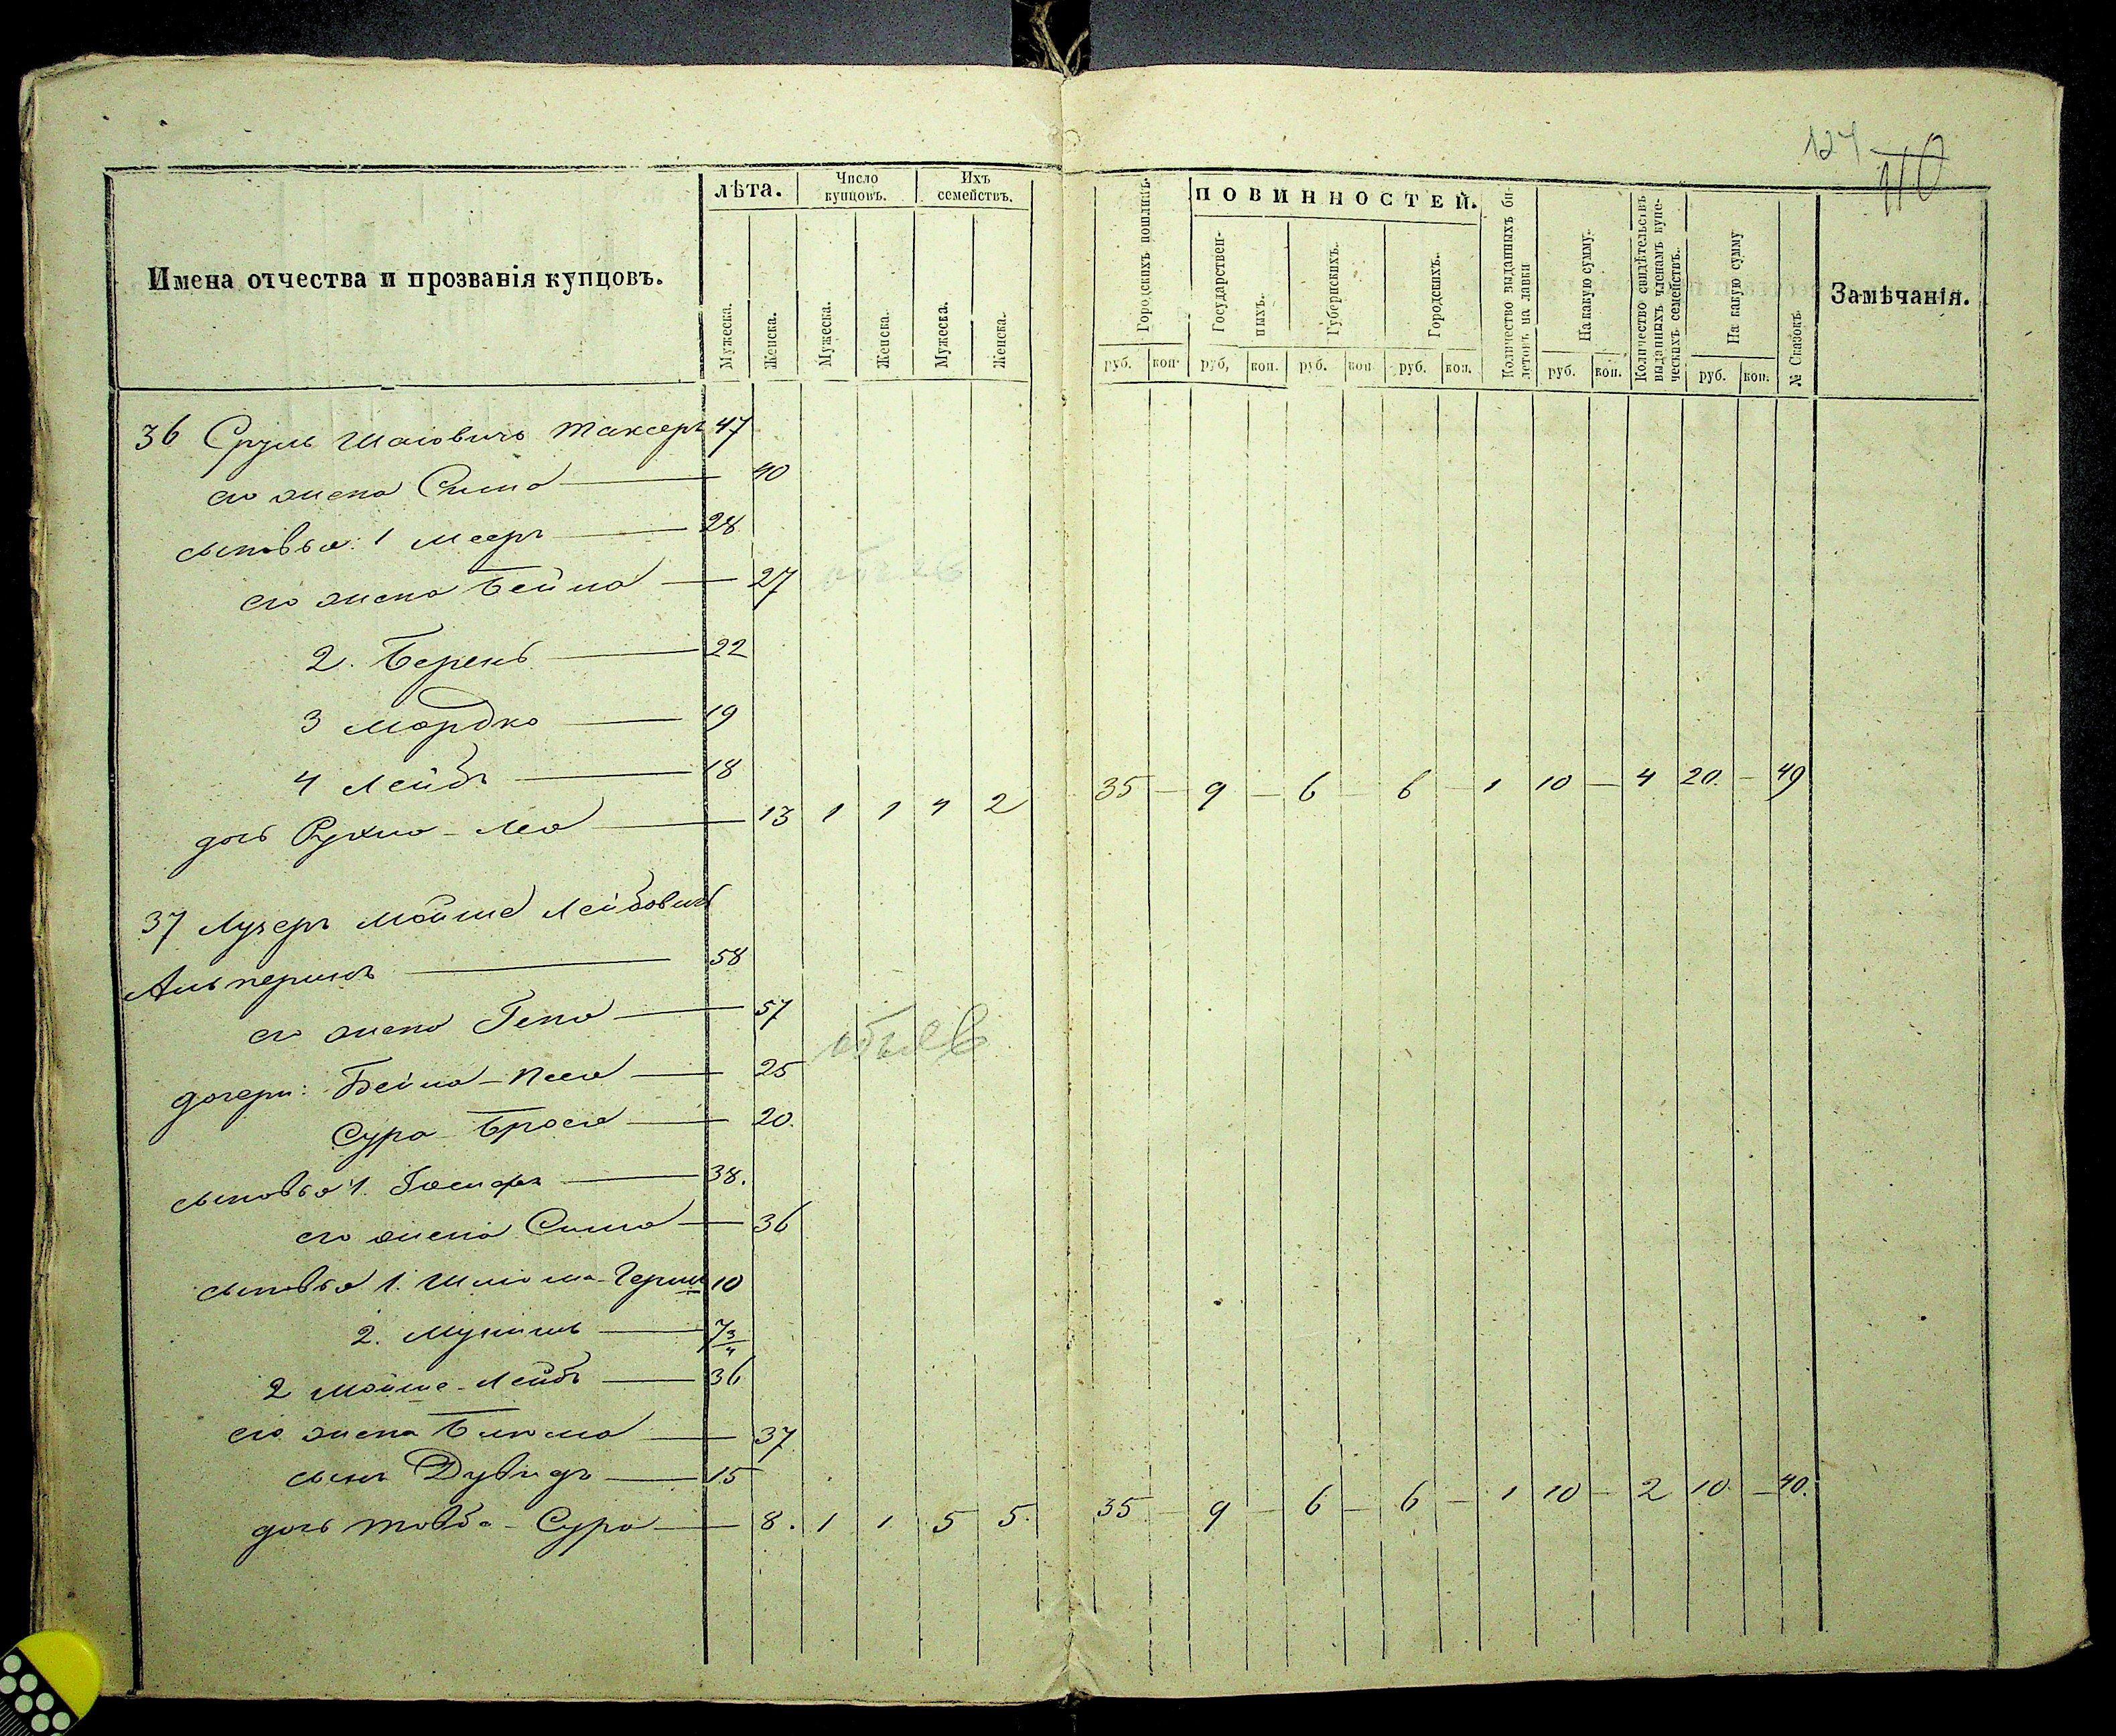 124
110
Имена отчества и прозванія купцовъ.
лѣта.
Число купцовъ.
Ихъ семействъ.
Мужеска.
Женска.
Мужеска.
Женска.
Мужеска.
Женска.
Городскихъ пошлинъ.
ПОВИННОСТЕЙ.
Государствен-
ныхъ.
Губернскихъ.
Городскихъ.
Количество выданныхъ би-
летовъ на лавки
На какую сумму.
Количество свидѣтельствъ
выданныхъ членамъ купе-
ческихъ семействъ.
На какую сумму
№ Сказокъ
Замѣчанія.
руб. коп. руб. коп. руб. коп. руб. коп. руб. коп. руб. коп.
36 Сруль Шаговичъ Таксеръ 47
его жена Сима — 40
сыновья: 1 Мееръ — 28
его жена Бейла — 27
2. Берень — 22
3 Мордко — 19
4 Лейбъ — 18
дочь Рухма-Лея — 13 1 1 4 2 35 — 9 — 6 — 6 — 1 10 — 4 20. — 49
37 Лузеръ Мойше Лейбовичъ
Альперинъ — 58
его жена Гена — 57
объяв
дочери: Бейла-Песя — 25
Сура-Брося — 20.
сыновья 1. Іосифъ — 38.
его жена Сима — 36
сыновья 1. Шлиома-Герш 10
2. — 7 3/4
2 Мойше-Лейбъ — 36
его жена Блюма — 37
сынъ Дувидъ — 15
дочь Товба-Сура — 8. 1 1 5 5. 35 — 9 — 6 — 6 — 1 10 — 2 10. — 40.